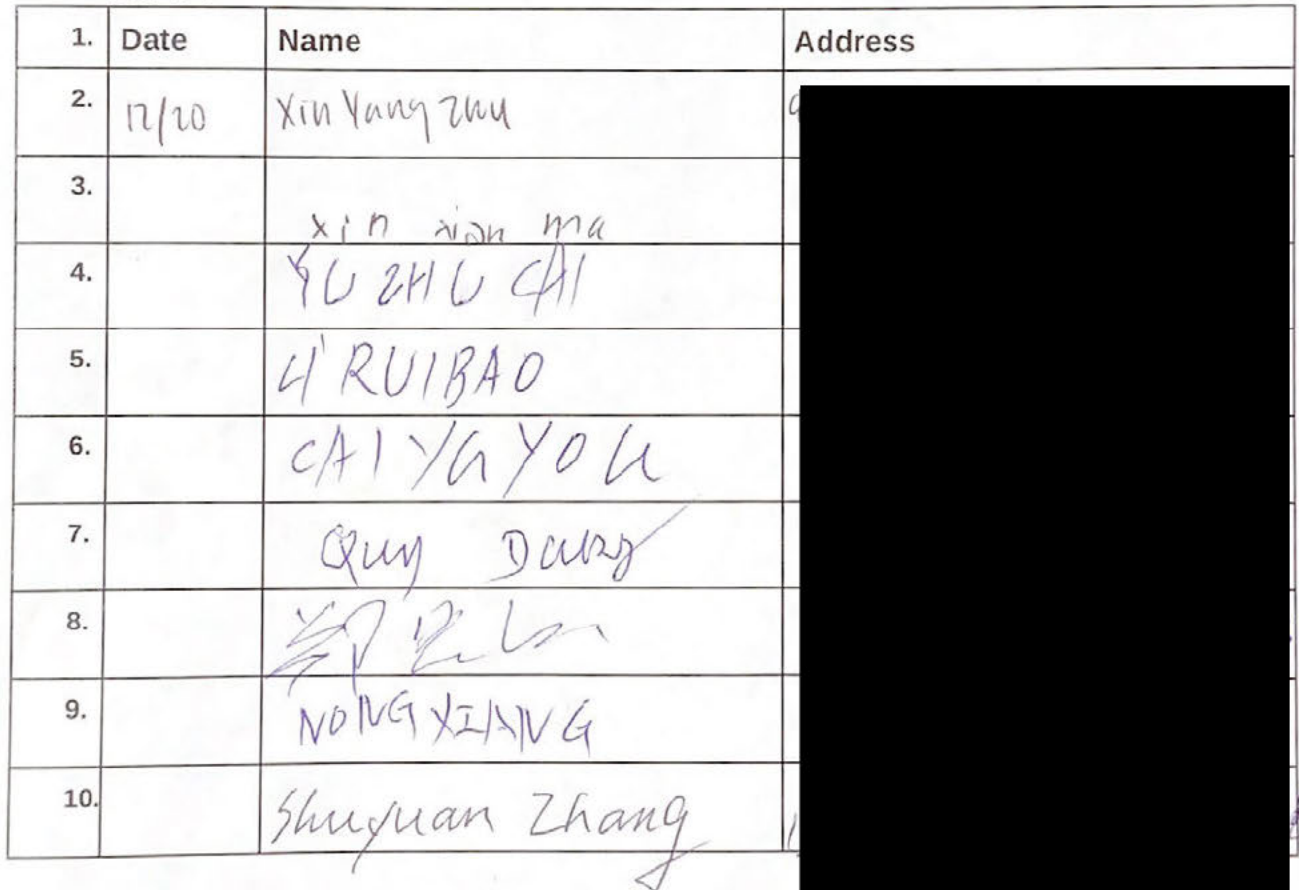 1. Date Name Address
2. 12/20 Xin Yang Zhu
3. xin xian ma
4. YU ZHU CAI
5. LI RUIBAO
6. CAI YA YOU
7. Quy Dang
8. 郑
9. NONG XIANG
10. Shuyuan Zhang